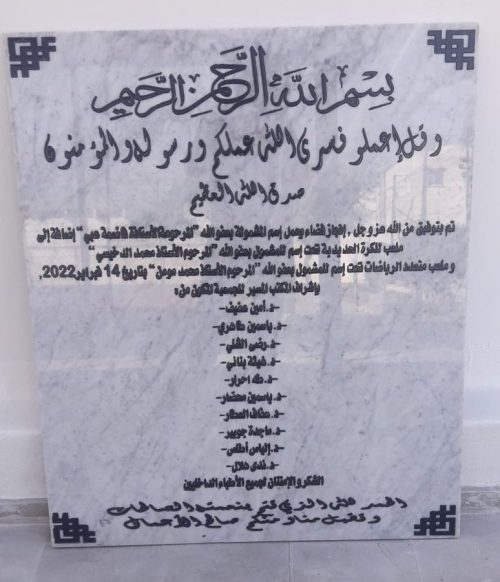 بسم الله الرحمن الرحيم
وقل إعملو فسرى الله عملكم ورسوله والمؤمنون
صدق الله العظيم
تم بتوفيق من الله عز وجل , إنجاز فضاء يحمل إسم المشمولة بعفو الله "المرحومة الأستاذة فاطمة حبي" إضافة إلى
ملعب للكرة الحديدية تحت إسم المشمول بعفو الله "المرحوم الأستاذ محمد الدخيسي"
و ملعب متعدد الرياضات تحت إسم المشمول بعفو الله "المرحوم الأستاذ محمد مومن" بتاريخ 14 فبراير 2022,
بإشراف المكتب المسير للجمعية المكون من:
-د.أمين عفيف-
-د.ياسمين طاهري-
-د.رضى الفلي-
-د.غيثة بناني-
-د.طه احرار-
-د.ياسمين معضار-
-د.عفاف العطار-
-د.ماجدة جويبر-
-د.إلياس أطلس-
-د.ندى هلال-
الشكر والإمتنان لجميع الأطباء الداخليين
الحمد لله الذي تتم بنعمته الصالحات
وتقبل منا ومنكم صالح الأعمال